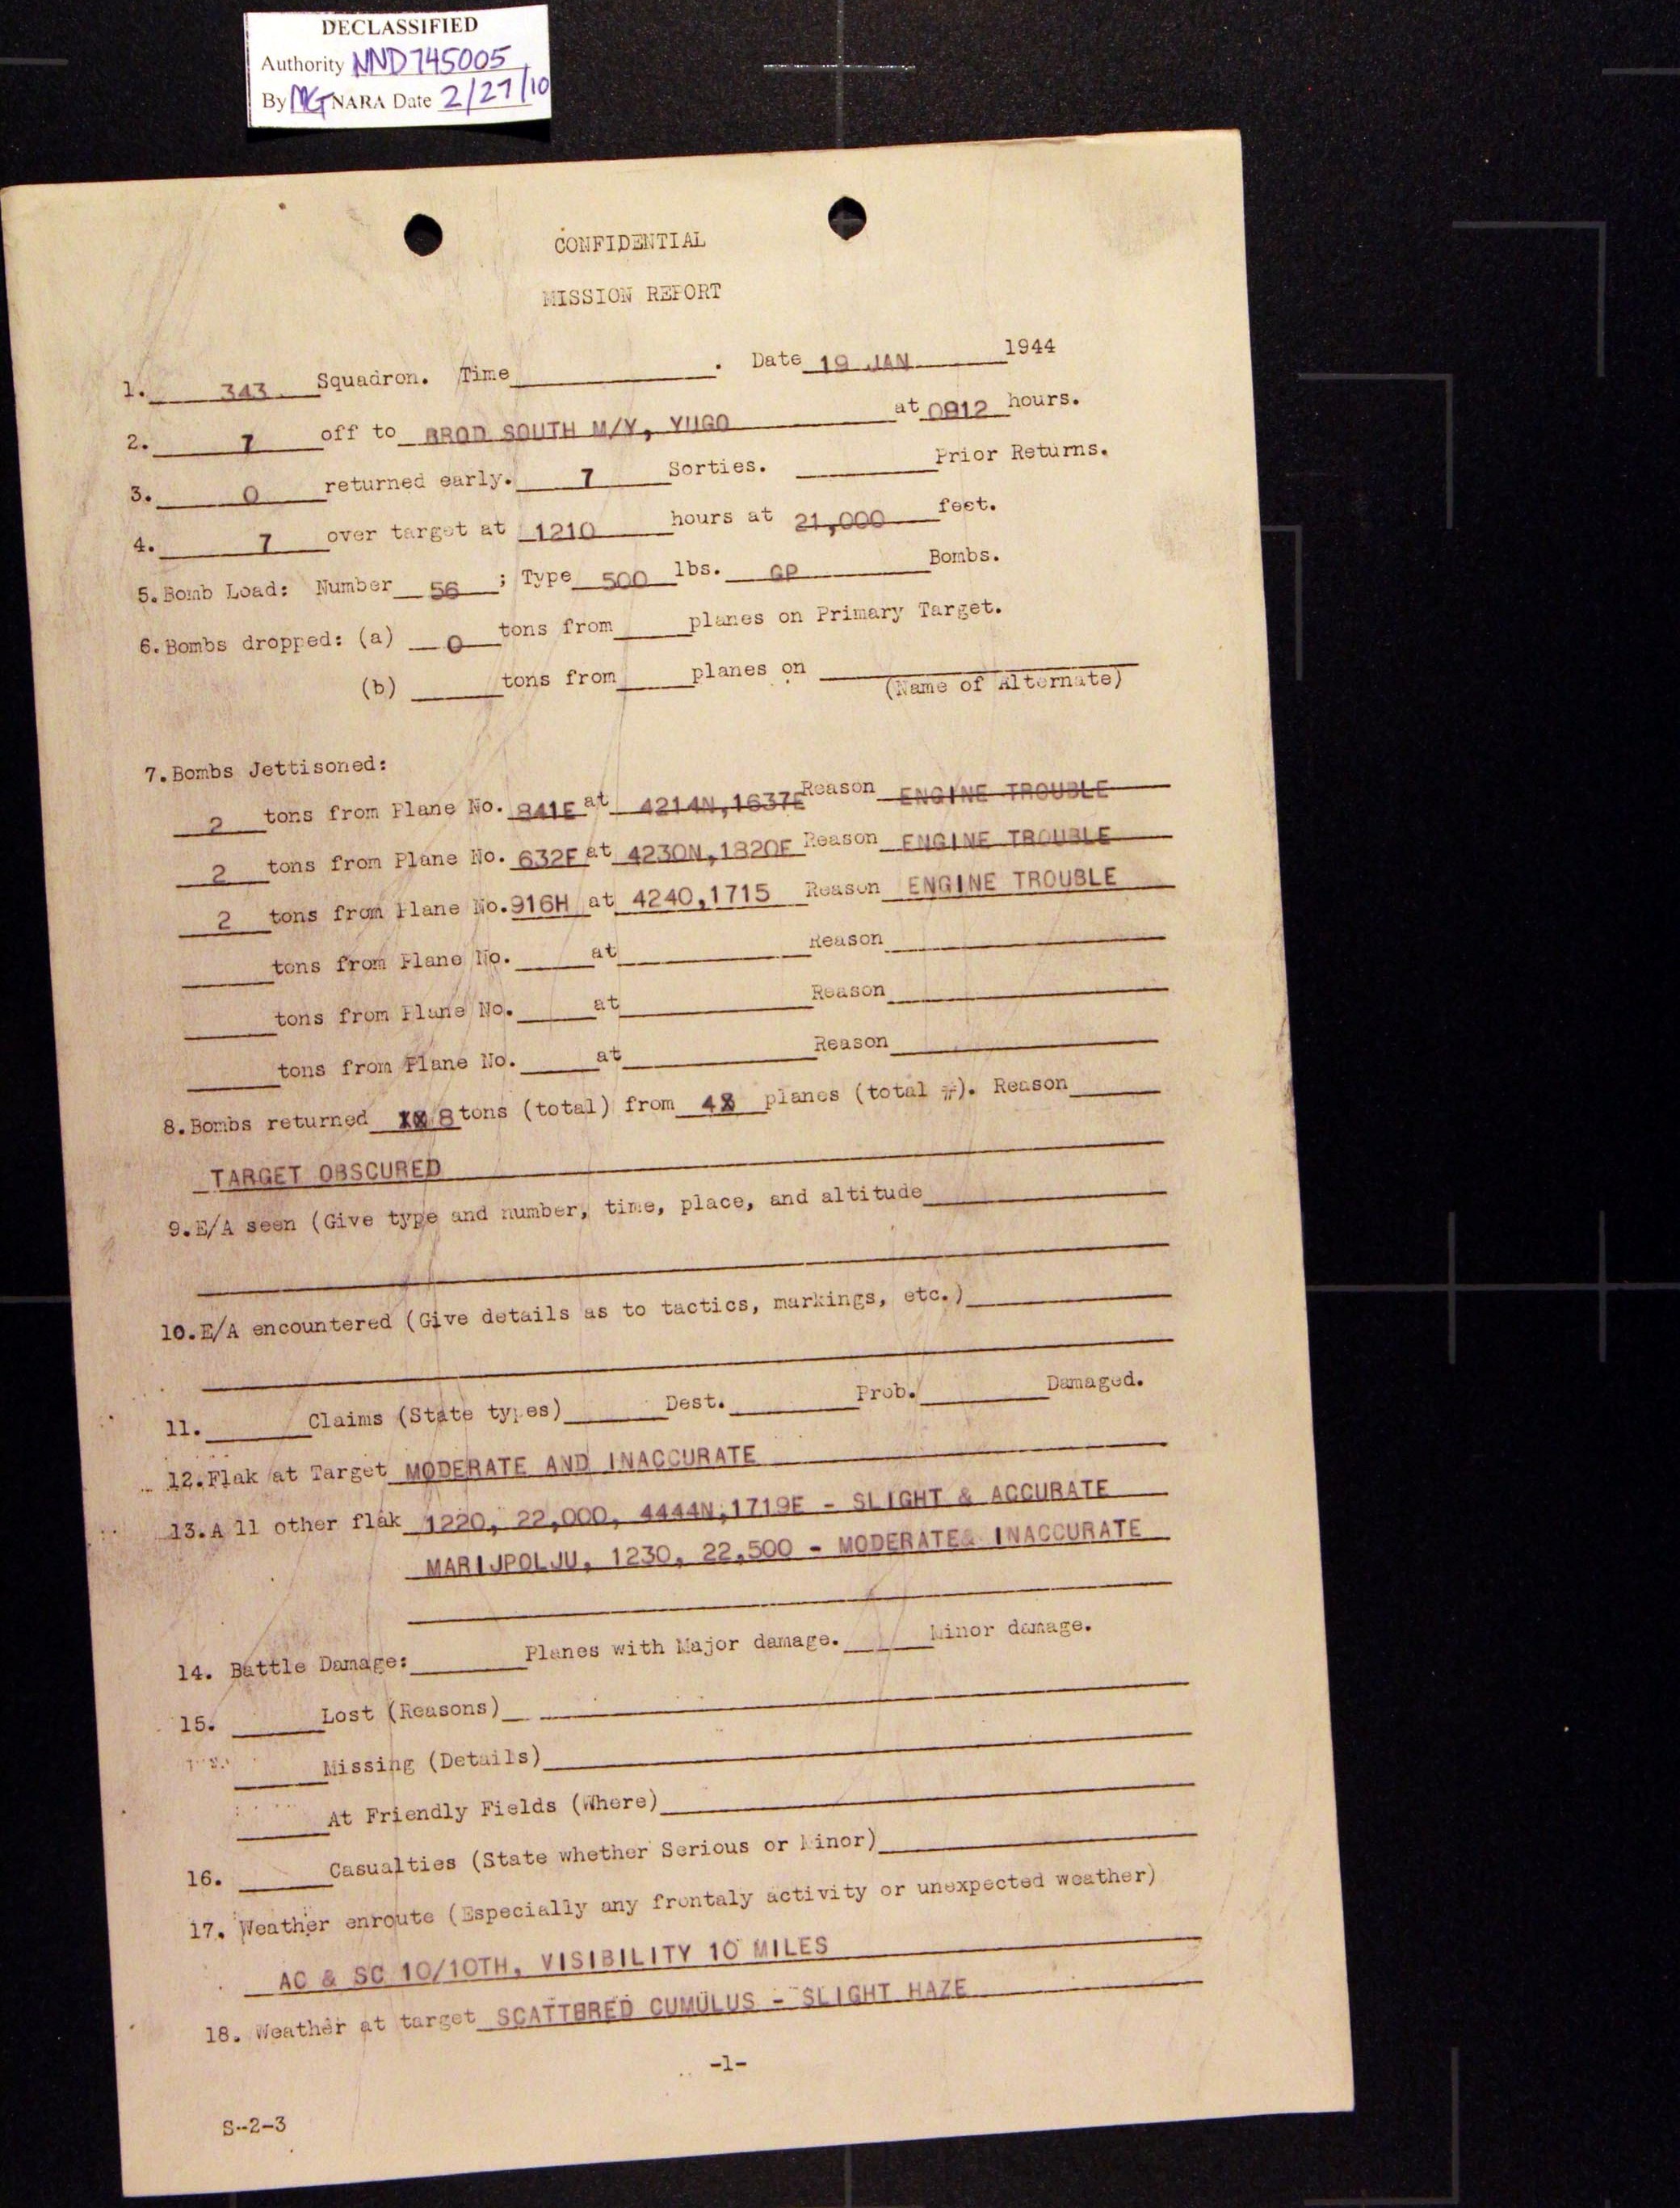 DECLASSIFIED
Authority NND745005
By MG NARA Date 2/27/10
CONFIDENTIAL
MISSION REPORT
1. 343 Squadron. Time . Date 19 JAN 1944
2. 7 off to BROD SOUTH M/Y, YUGO at 0912 hours.
3. 0 returned early. 7 Sorties. Prior Returns.
4. 7 over target at 1210 hours at 21,000 feet.
5. Bomb Load: Number 56 ; Type 500 lbs. GP Bombs.
6. Bombs dropped: (a) 0 tons from planes on Primary Target.
(b) tons from planes on
(Name of Alternate)
7. Bombs Jettisoned:
2 tons from Plane No. 841E at 4214N,1637E Reason ENGINE TROUBLE
2 tons from Plane No. 632F at 4230N,1820E Reason ENGINE TROUBLE
2 tons from Plane No. 916H at 4240,1715 Reason ENGINE TROUBLE
tons from Plane No. at Reason
tons from Plane No. at Reason
tons from Plane No. at Reason
8. Bombs returned 8 tons (total) from 4 planes (total #). Reason
TARGET OBSCURED
9. E/A seen (Give type and number, time, place, and altitude
10. E/A encountered (Give details as to tactics, markings, etc.)
11. Claims (State types) Dest. Prob. Damaged.
12. Flak at Target MODERATE AND INACCURATE
13. A ll other flak 1220, 22,000, 4444N,1719E - SLIGHT & ACCURATE
MARIJPOLJU, 1230, 22,500 - MODERATE& INACCURATE
14. Battle Damage: Planes with Major damage. Minor damage.
15. Lost (Reasons)
Missing (Details)
At Friendly Fields (Where)
16. Casualties (State whether Serious or Minor)
17. Weather enroute (Especially any frontaly activity or unexpected weather)
AC & SC 10/10TH, VISIBILITY 10 MILES
18. Weather at target SCATTBRED CUMULUS - SLIGHT HAZE
-1-
S--2-3